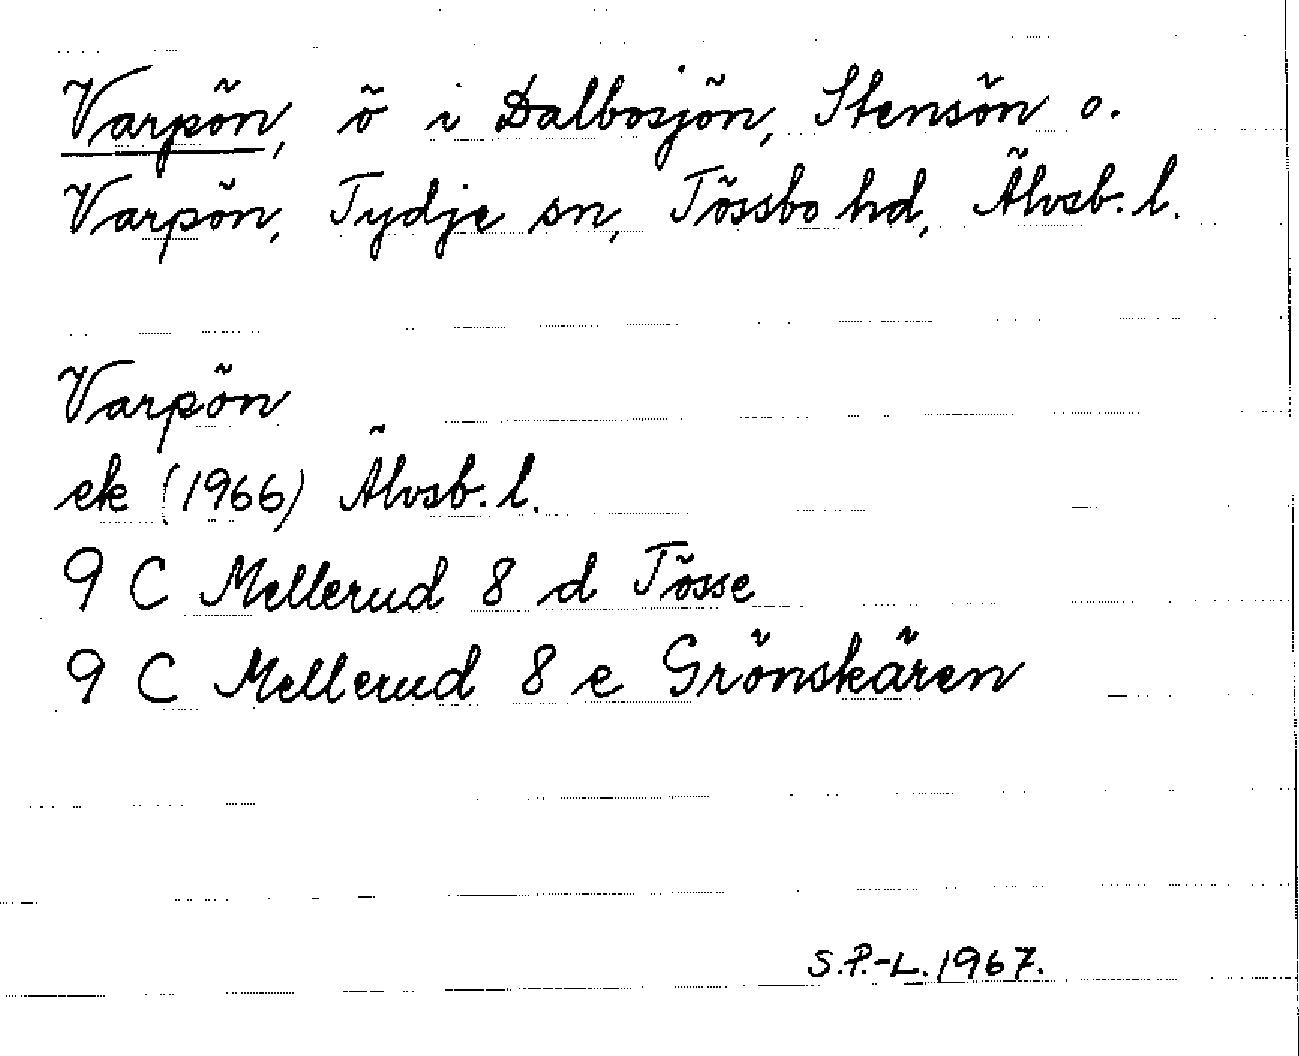 Varpön, ö i Dalbosjön, Stensön o.
Varpön, Tydje sn, Tössbo hd, Älvsb. l.
Varpön
ek (1966) Älvsb. l.
9 C Mellerud 8 d Tösse
9 C Mellerud 8 e Grönskären
S.P.-L. 1967.